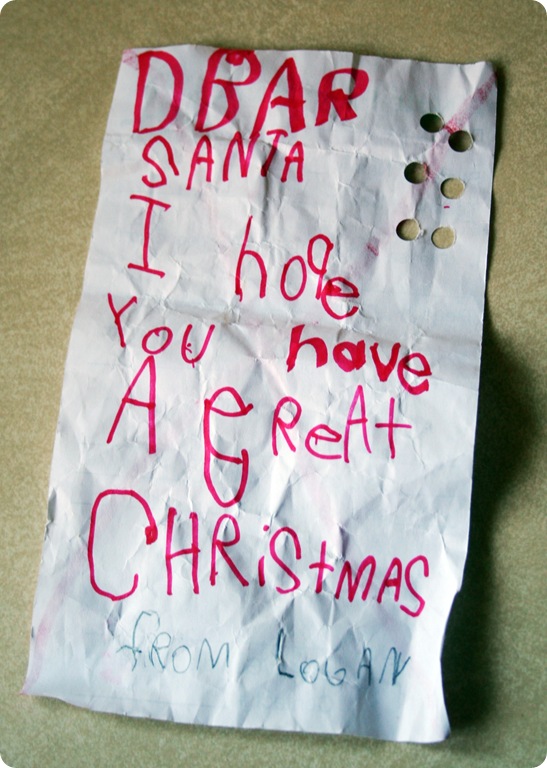 DBAR
SANTA
I hope
YOU have
A GReAt
CHRiStMAS
fROM LOGAN